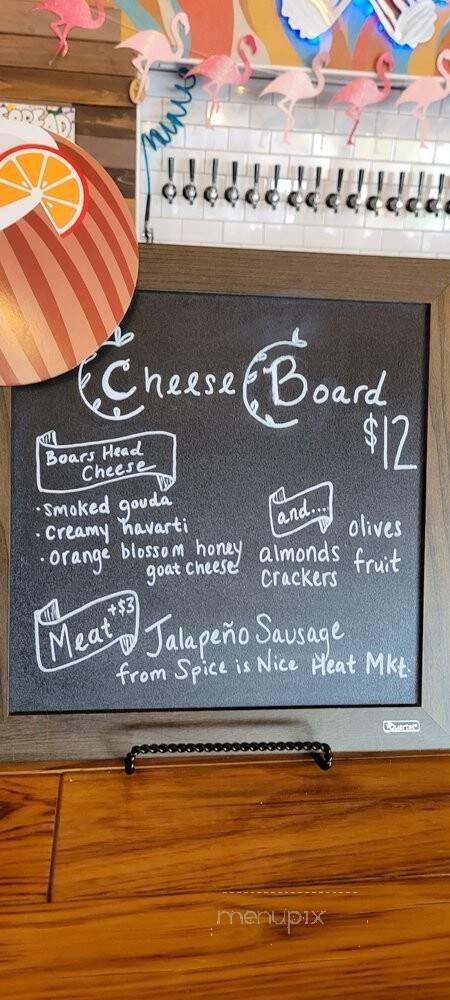 SPREAD
Cheese Board
$12
Boars Head
Cheese
• smoked gouda
• creamy havarti
• orange blossom honey
goat cheese
and...
olives
almonds fruit
crackers
Meat +$3
Jalapeño Sausage
from Spice is Nice Heat Mkt.
Quartet
menupix